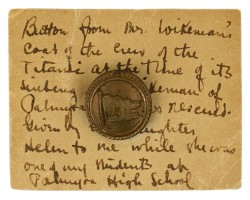 Button from Mr. Wikeman's
Coat of the Crew of the
Titanic at the Time of its
Sinking. Wikeman of
Palmyra was Rescued.
Given by daughter
Helen to me while she was
one of my students at
Palmyra High School